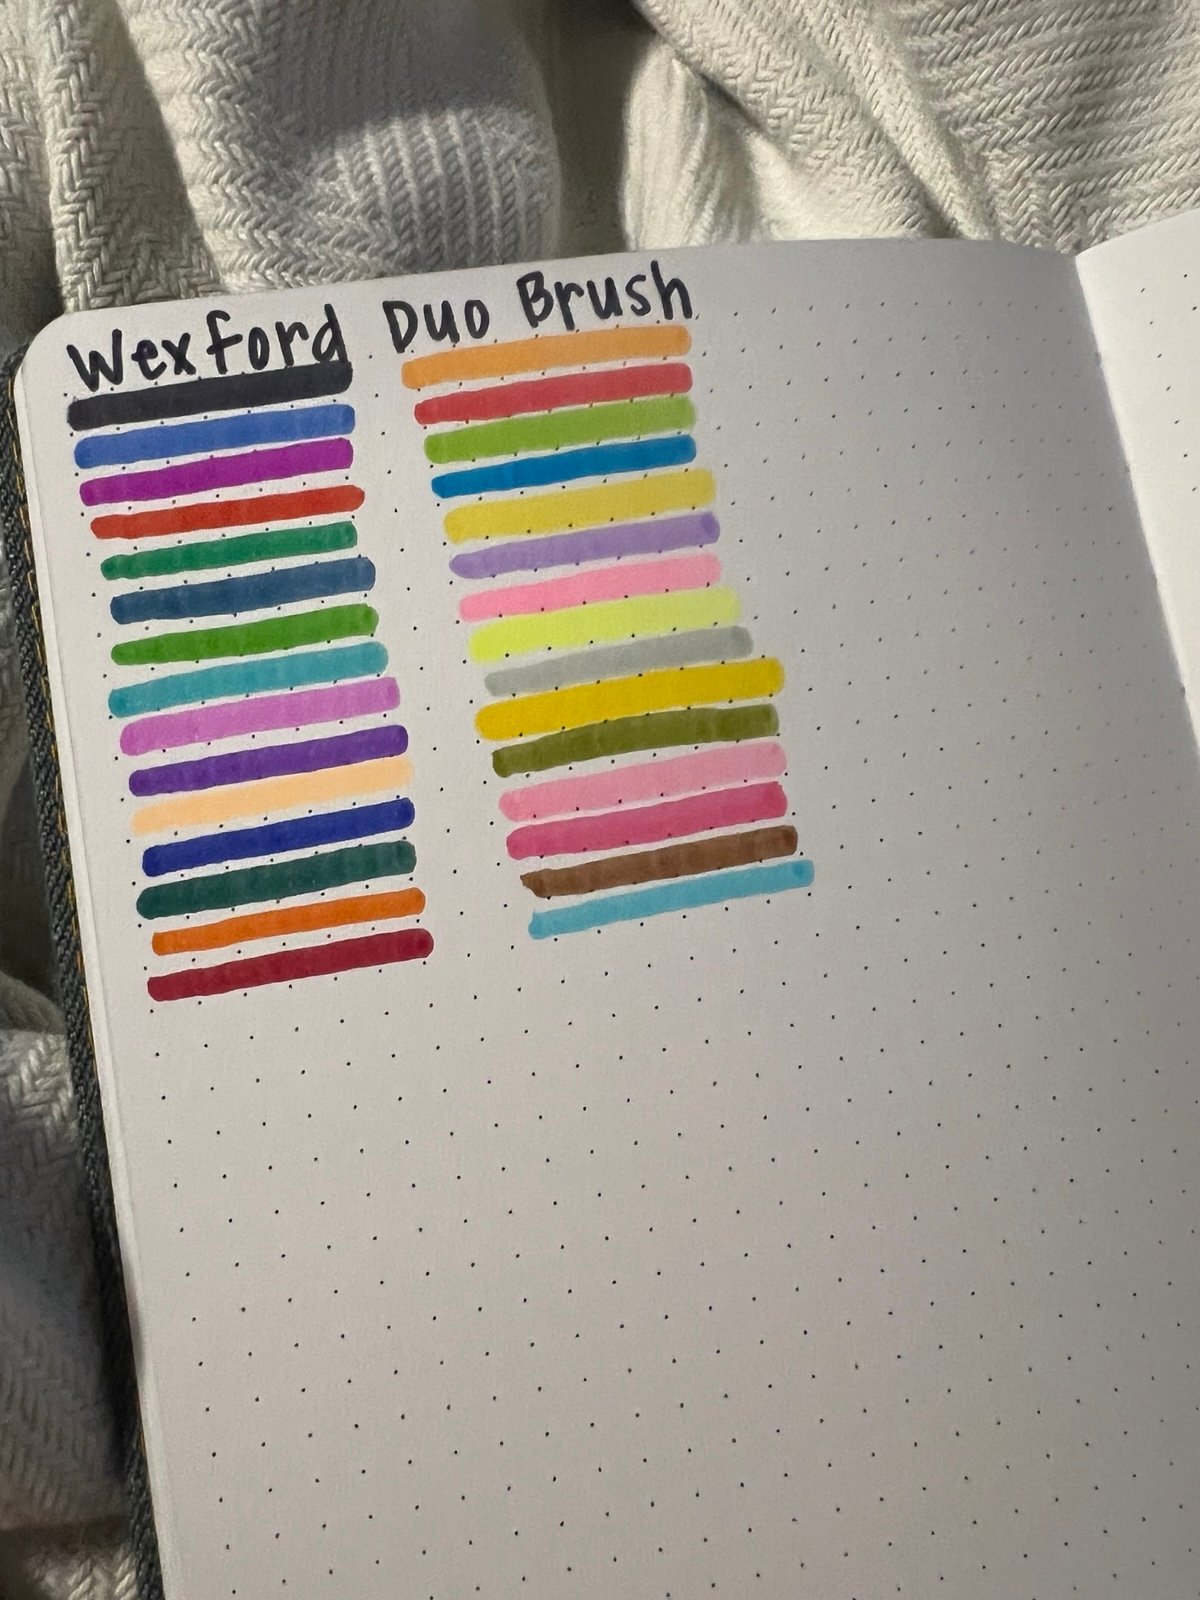 Wexford Duo Brush